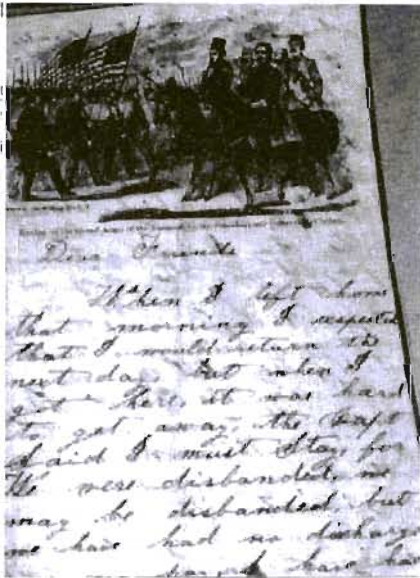 Dear Friends
When I left home
that morning I expected
that I would return the
next day but when I
got there it was hard
to get away, the Capt
said I must Stay, for
We were disbanded, we
may be disbanded but
we have had no discharge
have had